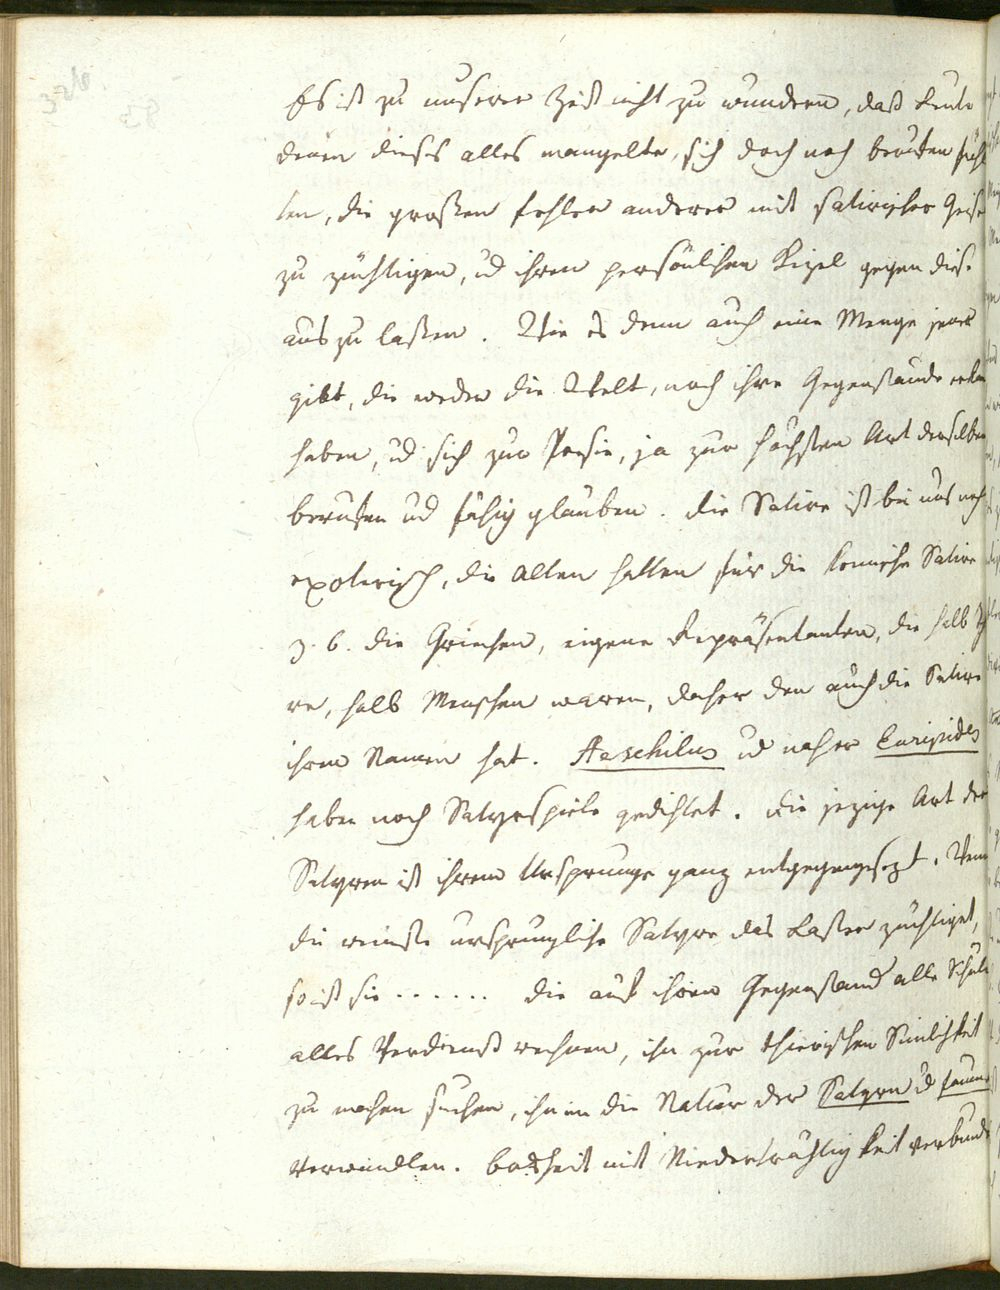 Es ist zu unserer Zeit nicht zu wundern, daß Leute
denen dieses alles mangelte, sich doch noch berufen fühl
ten, die großen Fehler anderer mit satirischer Geisel
zu züchtigen, ud ihren persönlichen Kizel gegen diese
aus zu laßen. Wie es denn auch eine Menge jener
gibt, die weder die Welt, noch ihre Gegenstände erkan
haben, ud sich zur Poesie, ja zur höchsten Art derselben
berufen ud fähig glauben. Die Satire ist bei uns noch
exoterisch, die Alten hatten für die komische Satire
z. b. die Griechen, eigene Repräsentanten, die halb Thi
re, halb Menschen waren, daher den auch die Satire
ihren Namen hat. Aeschilus ud nacher Euripides
haben noch Satyrspiele gedichtet. Die jezige Art der
Satyren ist ihrem Ursprunge ganz entgegengesezt. Wenn
die reinste ursprungliche Satyre das Laster züchtiget,
so ist sie ...... die auf ihren Gegenstand alle Schuld
alles Verdienst rechnen, ihn zur thierischen Sinlichkeit
zu machen suchen, ihn in die Natur der Satyrn ud Faunen
verwandlen. Bosheit mit Niederträchtigkeit verbunden